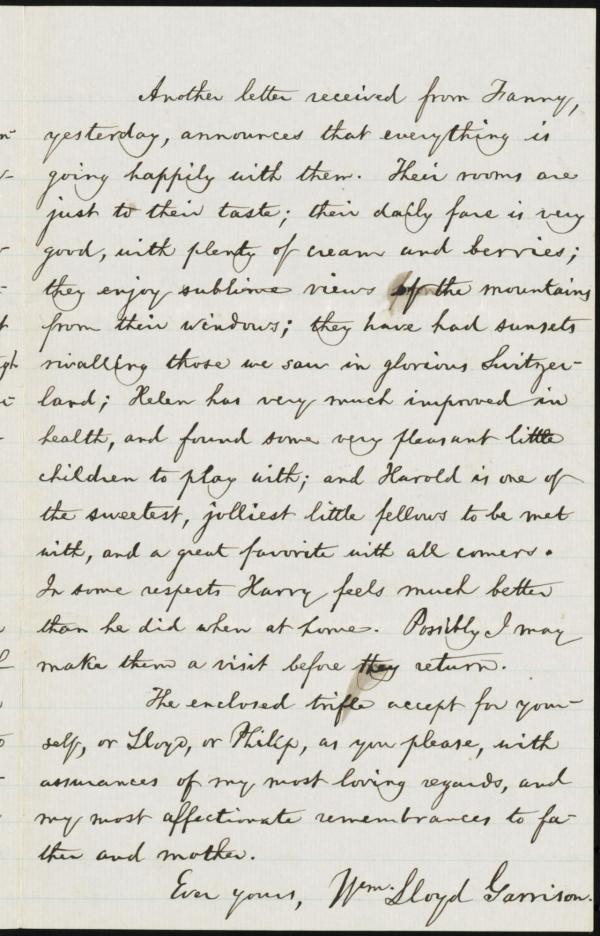 Another letter received from Fanny,
yesterday, announces that everything is
going happily with them. Their rooms are
just to their taste; their daily fare is very
good, with plenty of cream and berries;
they enjoy sublime views of the mountains
from their windows; they have had sunsets
rivalling those we saw in glorious Switzer-
land; Helen has very much improved in
health, and found some very pleasant little
children to play with; and Harold is one of
the sweetest, jolliest little fellows to be met
with, and a great favorite with all comers.
In some respects Harry feels much better
than he did when at home. Possibly I may
make them a visit before they return.
The enclosed trifle accept for your-
self, or Lloyd, or Philip, as you please, with
assurances of my most loving regards, and
my most affectionate remembrances to fa-
ther and mother.
Ever yours, Wm. Lloyd Garrison.